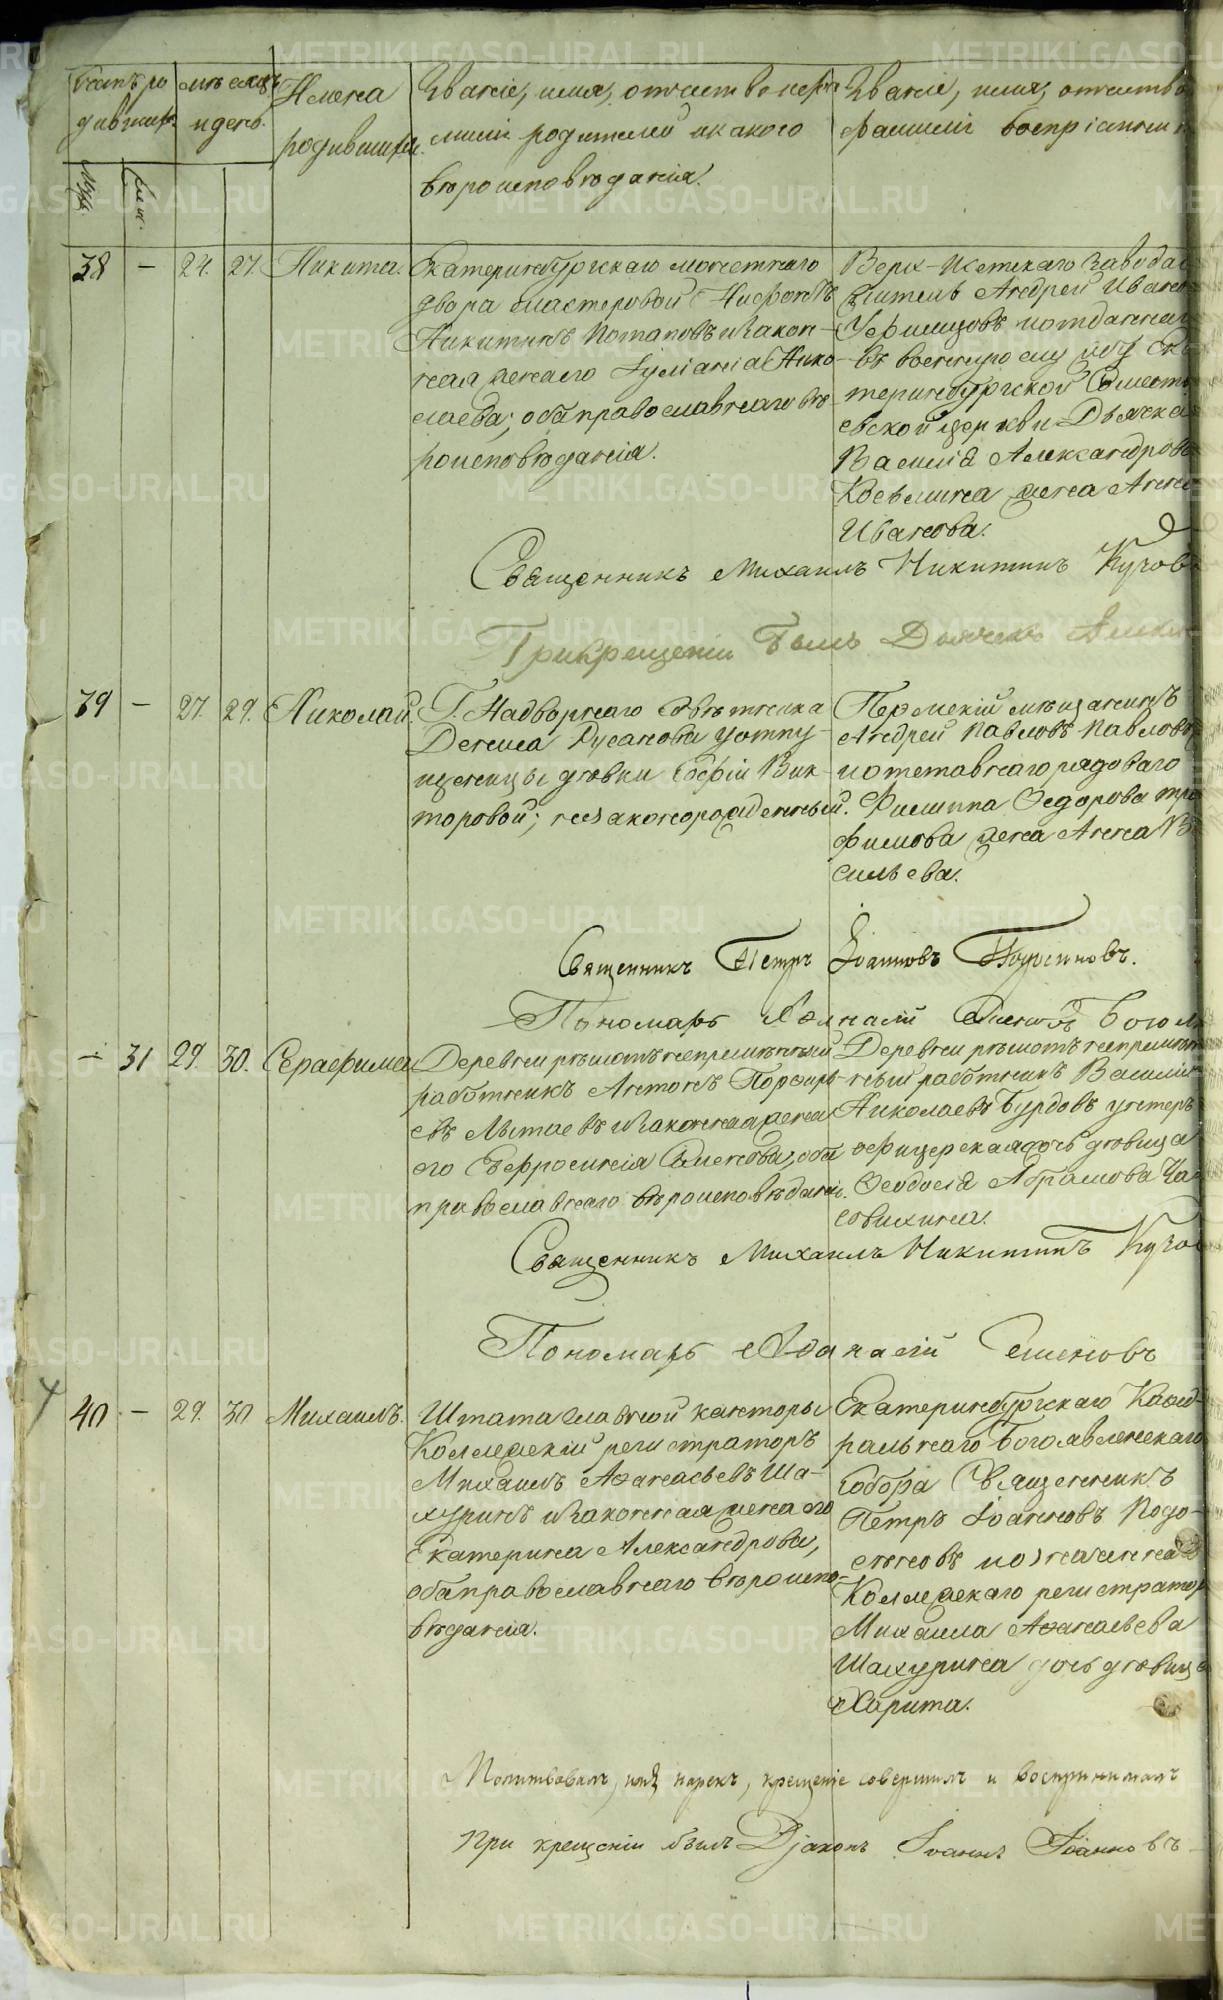 Счетъ ро
дивших.
мѣсяцъ
и день.
Имена
родившихся.
Званіе, имя, отчество и фа
миліи родителей и какого
вѣроисповѣданія.
Званіе, имя, отчество
фамиліи воспріемни
Муж.
Жен.
38 — 24. 27. Никита.
Екатеринбургскаго монетнаго
двора мастеровой Нифонтъ
Никитинъ Потаповъ и закон-
ная жена его Іуліанія Нико-
лаева; оба православнаго вѣ-
роисповѣданія.
Верх-Исетскаго Завода
житель Андрей Ивано
и отданнаго
въ военную службу Ека
теринбургской
евской церкви Дьячка
Василія Александрова
Космина жена Анна
Иванова.
Священникъ Михаилъ Никитинъ
При крещеніи былъ Дьячекъ
39 — 27. 29. Николай.
Г. Надворнаго Совѣтника
Дениса Русанова отпу-
щенницы дѣвки Софіи Вик-
торовой; незаконорожденный.
Пермскій мѣщанинъ
Андрей Павловъ Павловъ
и отставнаго рядоваго
Филиппа Ѳедорова Тро
фимова жена Анна Ва
сильева.
Священникъ Петръ Іоанновъ
Пономарь Аѳанасій Семеновъ Богом
— 31 29. 30. Серафима
Деревни рѣшотъ непремѣнный
работникъ Антонъ Порфирь-
евъ Мытаевъ и законная жена
его Евфросинія Семенова, оба
православнаго вѣроисповѣданія.
Деревни рѣшотъ непремѣн
ный работникъ Василій
Николаевъ Бурдовъ и унтеръ
офицерская дочь дѣвица
Ѳеодосія Абрамова Ча
совихина.
Священникъ Михаилъ Никитинъ
Пономарь Аѳанасій Семеновъ
40 — 29. 30 Михаилъ.
Штата Главной канторы
Коллежскій регистраторъ
Михаилъ Аѳанасьевъ Ша-
хуринъ и законная жена его
Екатерина Александрова,
оба православнаго вѣроиспо-
вѣданія.
Екатеринбургскаго Каѳед-
ральнаго Богоявленскаго
Собора Священникъ
Петръ Іоанновъ Подо-
сеновъ и означеннаго
Коллежскаго регистратора
Михаила Аѳанасьева
Шахурина дочь дѣвица
Харита.
Молитвовалъ, имя нарекъ, крещеніе совершилъ и воспринималъ
При крещеніи былъ Діаконъ Іоаннъ Іоанновъ
METRIKI.GASO-URAL.RU